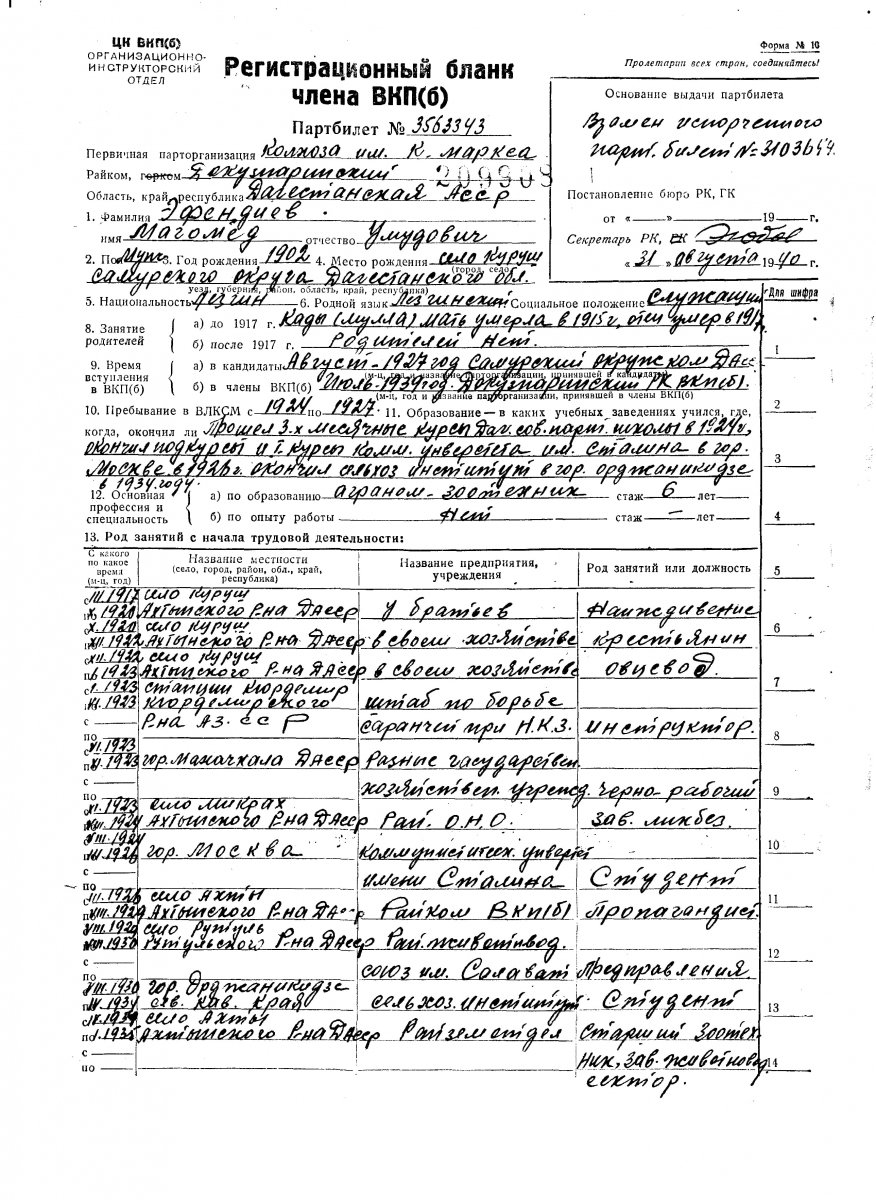 ЦК ВКП(б)
ОРГАНИЗАЦИОННО-
ИНСТРУКТОРСКИЙ
ОТДЕЛ
Форма № 10
Пролетарии всех стран, соединяйтесь!
Регистрационный бланк
члена ВКП(б)
Партбилет № 3563343
Основание выдачи партбилета
Взамен испорченного
парт. билет N=3103644.
Первичная парторганизация Колхоза им. К. Маркса
Райком, горком Докузпаринский
209303
Область, край, республика Дагестанская Асср
Постановление бюро РК, ГК
от « — » — 19 — г.
Секретарь РК,
« 31 » Августа 1940 г.
1. Фамилия Эфендиев
имя Магомед отчество Умудович
2. Пол Муж 3. Год рождения 1902 4. Место рождения село Куруш
(город, село,
самурского округа Дагестанск. обл.
уезд, губерния, район, область, край, республика)
5. Национальность Лезгин 6. Родной язык Лезгинский Социальное положение Служащий
Для шифра
8. Занятие родителей
а) до 1917 г. Кады (мулла) мать умерла в 1915 г, отец умер в 1917
б) после 1917 г. Родителей нет.
1
9. Время вступления в ВКП(б)
а) в кандидаты Август-1927 год Самурский окружком ДАсс
(м-ц, год и название парторганизации, принявшей в кандидаты)
б) в члены ВКП(б) Июль-1939 год. Докузпаринский РК ВКП(б).
(м-ц, год и название парторганизации, принявшей в члены ВКП(б)
2
10. Пребывание в ВЛКСМ с 1924 по 1927. 11. Образование — в каких учебных заведениях учился, где,
когда, окончил ли Прошел 3-х месячные курсы Даг. сов. парт. школы в 1924 г,
окончил подкурсы и I. курсы комм. унверстета им. Сталина в гор.
Москве в 1926 г. окончил сельхоз институт в гор. орджаникидзе
3
в 1934 году.
12. Основная профессия и специальность
а) по образованию аграном-зоотехник стаж 6 лет
б) по опыту работы Нет стаж — лет
4
13. Род занятий с начала трудовой деятельности:
С какого по какое время (м-ц, год)
Название местности (село, город, район, обл., край, республика)
Название предприятия, учреждения
Род занятий или должность
5
с III.1917 село Куруш
по X.1920 Ахтынского Р-на ДАсср У братьев Наиждивение
с X.1920 село Куруш
6
по XII.1922 Ахтынского Р-на ДАсср в своем хозяйстве крестьянин
с XII.1922 село Куруш
по 1923 Ахтынского Р-на ДАсср в своем хозяйстве овцевод.
7
1923 станции Кюрдемир
1923 Кюрдемирского штаб по борьбе
с — Р-на Аз. ССР саранчей при Н.К.З. инструктор.
8
по
с VI.1923
по XI.1923 гор. Махачкала ДАсср Разные гасударствен.
с —
хозяйствен. учрежд. черно-рабочий
9
по
с XI.1923 село Микрах
1924 Ахтынского Р-на ДАсср Рай. О.Н.О. Зав. ликбез.
VIII.1924
1926 гор. Москва Коммунистическ. унверстет
10
имени Сталина Студент
по
1926 село Ахты
11
по VIII.1929 Ахтынского Р-на ДАсср Райком ВКП(б) Пропагандист.
VIII.1929 село Рутуль
VIII.1930 Рутульского Р-на ДАсср Рай.животновод.
12
с —
союз им. Салават Предправления.
по
VIII.1930 гор. Орджаникидзе
1934 сев. кав. края сельхоз. институт Студент
13
1934 село Ахты
по 1935 Ахтынского Р-на ДАсср Райземотдел Старший зоотех-
с —
ник, зав. животновод
14
по —
сектор.